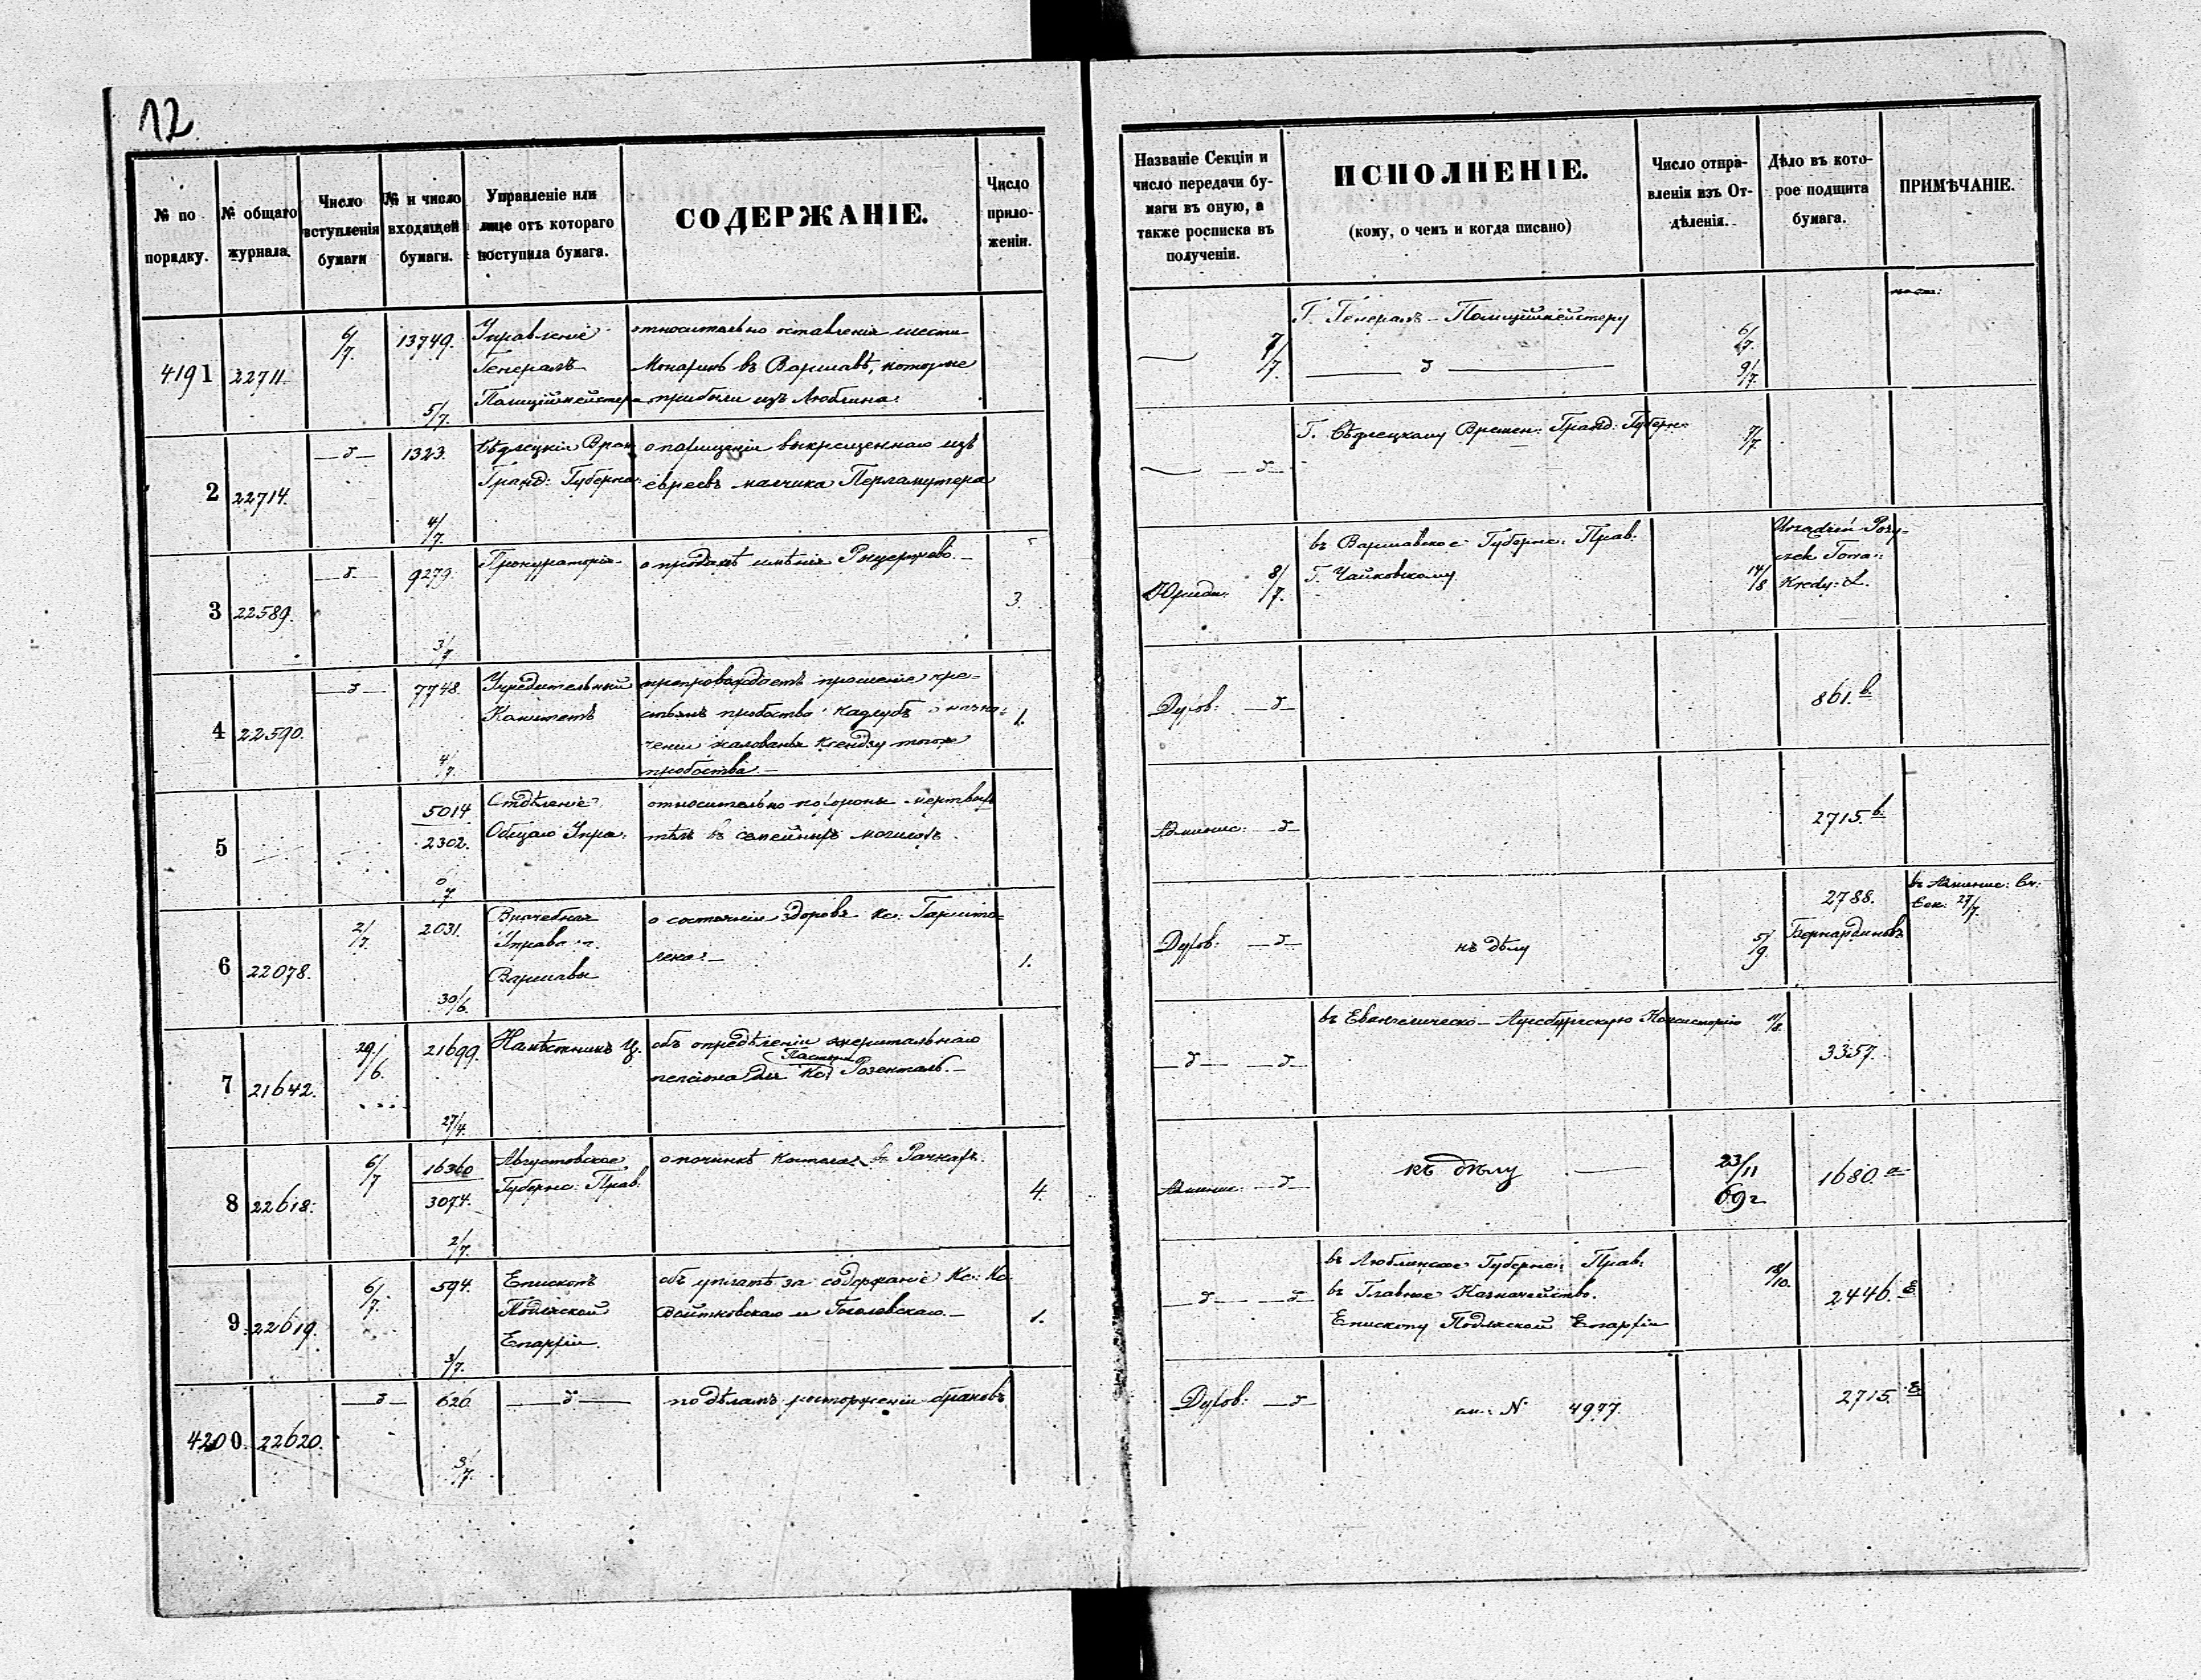 12
№ по порядку.
№ общаго журнала.
Число вступленія бумаги
№ и число входящей бумаги.
Управленіе или лице отъ котораго поступила бумага.
СОДЕРЖАНІЕ.
Число прило-
женіи.
Названіе Секціи и
число передачи бу-
маги въ оную, а
также росписка въ
полученіи.
ИСПОЛНЕНІЕ.
(кому, о чемъ и когда писано)
Число отпра-
вленія изъ От-
дѣленія.
Дѣло въ кото-
рое подшита
бумага.
ПРИМѢЧАНІЕ.
4191 22711. 6/7. 13749. 5/7.
Управленіе
Генералъ
Полиціймейстера
относительно оставленія шести
Монахинь въ Варшавѣ, которые
прибыли изъ Люблина.
7/7.
Г. Генералъ-Полиціймейстеру
6/7.
9/7.
2 22714. 1323. 4/7
Сѣдлецкій Врем.
Гражд: Губерна:
о помѣщеніи выкрещеннаго изъ
евреевъ мальчика Перламутера
Г. Сѣдлецкому Времен: Гражд: Губерн:
7/7.
3 22589. 9279. 3/7
Прокураторія
о продажѣ имѣнія
3
Юриди: 8/7.
въ Варшавское Губернс: Прав:
Г. Чайковскому
14/8
Kredy: L.
4 22590. 7748. 4/7.
Учредительный
Комитетъ
препровождаетъ прошеніе кре-
стьянъ пробоства Кадлубъ о назна-
ченіи жалованья Ксендзу того же
пробоства.
1.
Духов:
861. в.
5 5014. 2302.
Отдѣленіе
Общаго Упра:
относительно похоронъ мертвыхъ
тѣлъ въ семейныхъ могилахъ.
Админис:
2715. в.
6 22078. 2/7. 2031. 30/6.
Врачебная
Управа г.
Варшавы
о состояніи здоровья Кс:
1.
Духов:
къ дѣлу
5/9.
2788.
Бернардиновъ
въ Админис:
Сек. 27/7.
7 21642. 29/6. 21699. 27/4.
Намѣстникъ Ц.
объ опредѣленіи эмеритальнаго
Пастора
пенсіона для Кс: Розенталь.
въ Евангелическо-Аугсбургскую Консисторію
11/8.
3357.
8 22618. 6/7 16360 3074. 2/7.
Августовское
Губернс: Прав:
о починкѣ костела въ Рачкахъ.
4.
Админис:
къ дѣлу
23/11
69 г
1680. а.
9 22619. 6/7. 594. 3/7.
Епископъ
Подляской
Епархіи.
объ уплатѣ за содержаніе Кс: Кс.
Войтковскаго и Гоголовскаго.
1.
въ Люблинское Губернс: Прав:
въ Главное Казначейство.
Епископу Подляской Епархіи
18/10.
2446.
4200 22620. 626. 3/7.
по дѣламъ расторженіи браковъ
Духов:
см: № 4977.
2715.